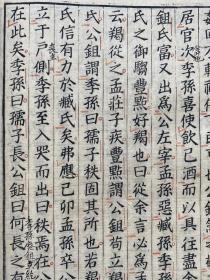 居官次季孫喜使飲己酒而以具往盡
鉏氏富又出為公左宰孟孫惡臧孫季
氏之御騶豐點好羯也曰從余言必為孟
云羯從之孟莊子疾豐點謂公鉏苟立
氏公鉏謂季孫曰孺子秩固其所也若羯
氏信有力於臧氏矣弗應己卯孟孫卒
立于戶側季孫至入哭而出曰秩焉在
在此矣季孫曰孺子長公鉏曰何長之有